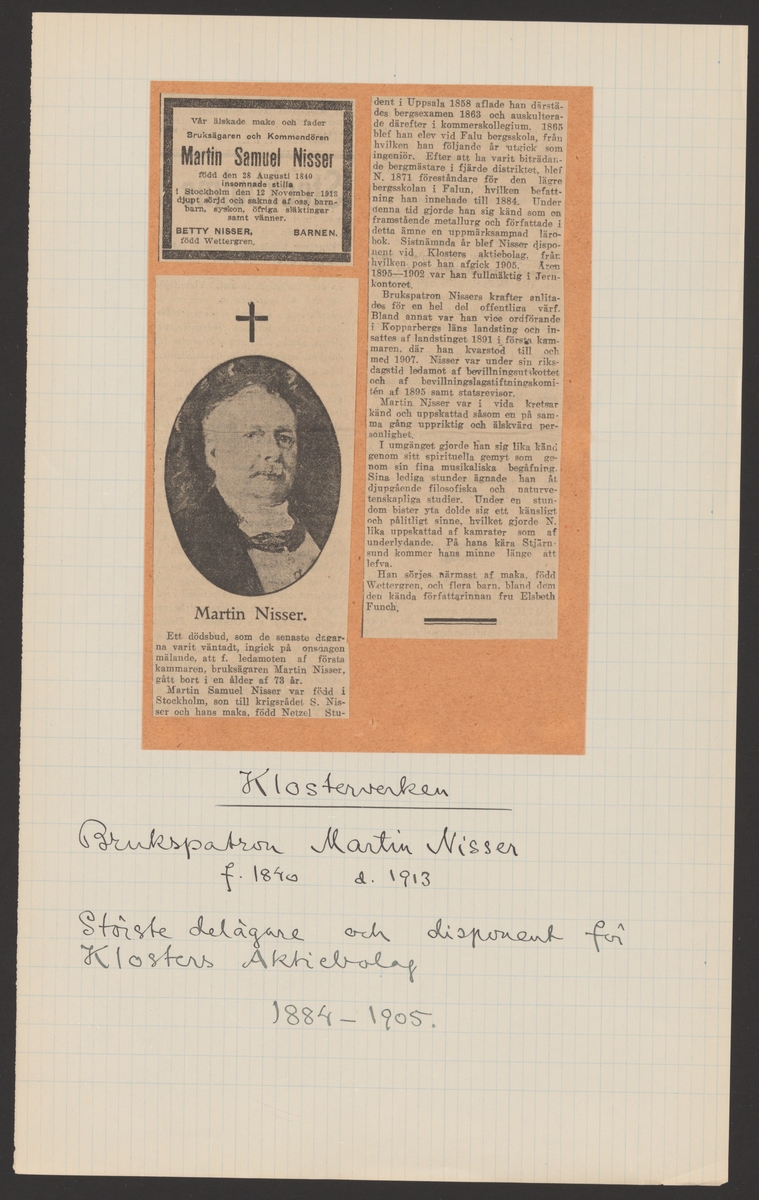 Vår älskade make och fader
Bruksägaren och Kommendören
Martin Samuel Nisser
född den 28 Augusti 1840
insomnade stilla
i Stockholm den 12 November 1913
djupt sörjd och saknad af oss, barn-
barn, syskon, öfriga släktingar
samt vänner.
BETTY NISSER, BARNEN.
född Wettergren.
Martin Nisser.
Ett dödsbud, som de senaste dagar-
na varit väntadt, ingick på onsdagen
mälande, att f. ledamoten af första
kammaren, bruksägaren Martin Nisser,
gått bort i en ålder af 73 år.
Martin Samuel Nisser var född i
Stockholm, son till krigsrådet S. Nis-
ser och hans maka, född Netzel Stu-
dent i Uppsala 1858 aflade han därstä-
des bergsexamen 1863 och auskultera-
de därefter i kommerskollegium. 1865
blef han elev vid Falu bergsskola, från
hvilken han följande år utgick som
ingeniör. Efter att ha varit biträdan-
de bergmästare i fjärde distriktet, blef
N. 1871 föreståndare för den lägre
bergsskolan i Falun, hvilken befatt-
ning han innehade till 1884. Under
denna tid gjorde han sig känd som en
framstående metallurg och författade i
detta ämne en uppmärksammad läro-
bok. Sistnämnda år blef Nisser dispo-
nent vid Klosters aktiebolag, från
hvilken post han afgick 1905. Åren
1895—1902 var han fullmäktig i Jern-
kontoret.
Brukspatron Nissers krafter anlita-
des för en hel del offentliga värf.
Bland annat var han vice ordförande
i Kopparbergs läns landsting och in-
sattes af landstinget 1891 i första kam-
maren, där han kvarstod till och
med 1907. Nisser var under sin riks-
dagstid ledamot af bevillningsutskottet
och af bevillningslagstiftningskomi-
tén af 1895 samt statsrevisor.
Martin Nisser var i vida kretsar
känd och uppskattad såsom en på sam-
ma gång uppriktig och älskvärd per-
sonlighet.
I umgänget gjorde han sig lika känd
genom sitt spirituella gemyt som ge-
nom sin fina musikaliska begåfning.
Sina lediga stunder ägnade han åt
djupgående filosofiska och naturve-
tenskapliga studier. Under en stun-
dom bister yta dolde sig ett känsligt
och pålitligt sinne, hvilket gjorde N.
lika uppskattad af kamrater som af
underlydande. På hans kära Stjärn-
sund kommer hans minne länge att
lefva.
Han sörjes närmast af maka, född
Wettergren, och flera barn, bland dem
den kända författarinnan fru Elsbeth
Funch.
Klosterverken
Brukspatron Martin Nisser
f. 1840 d. 1913
Störste delägare och disponent för
Klosters Aktiebolag
1884 – 1905.